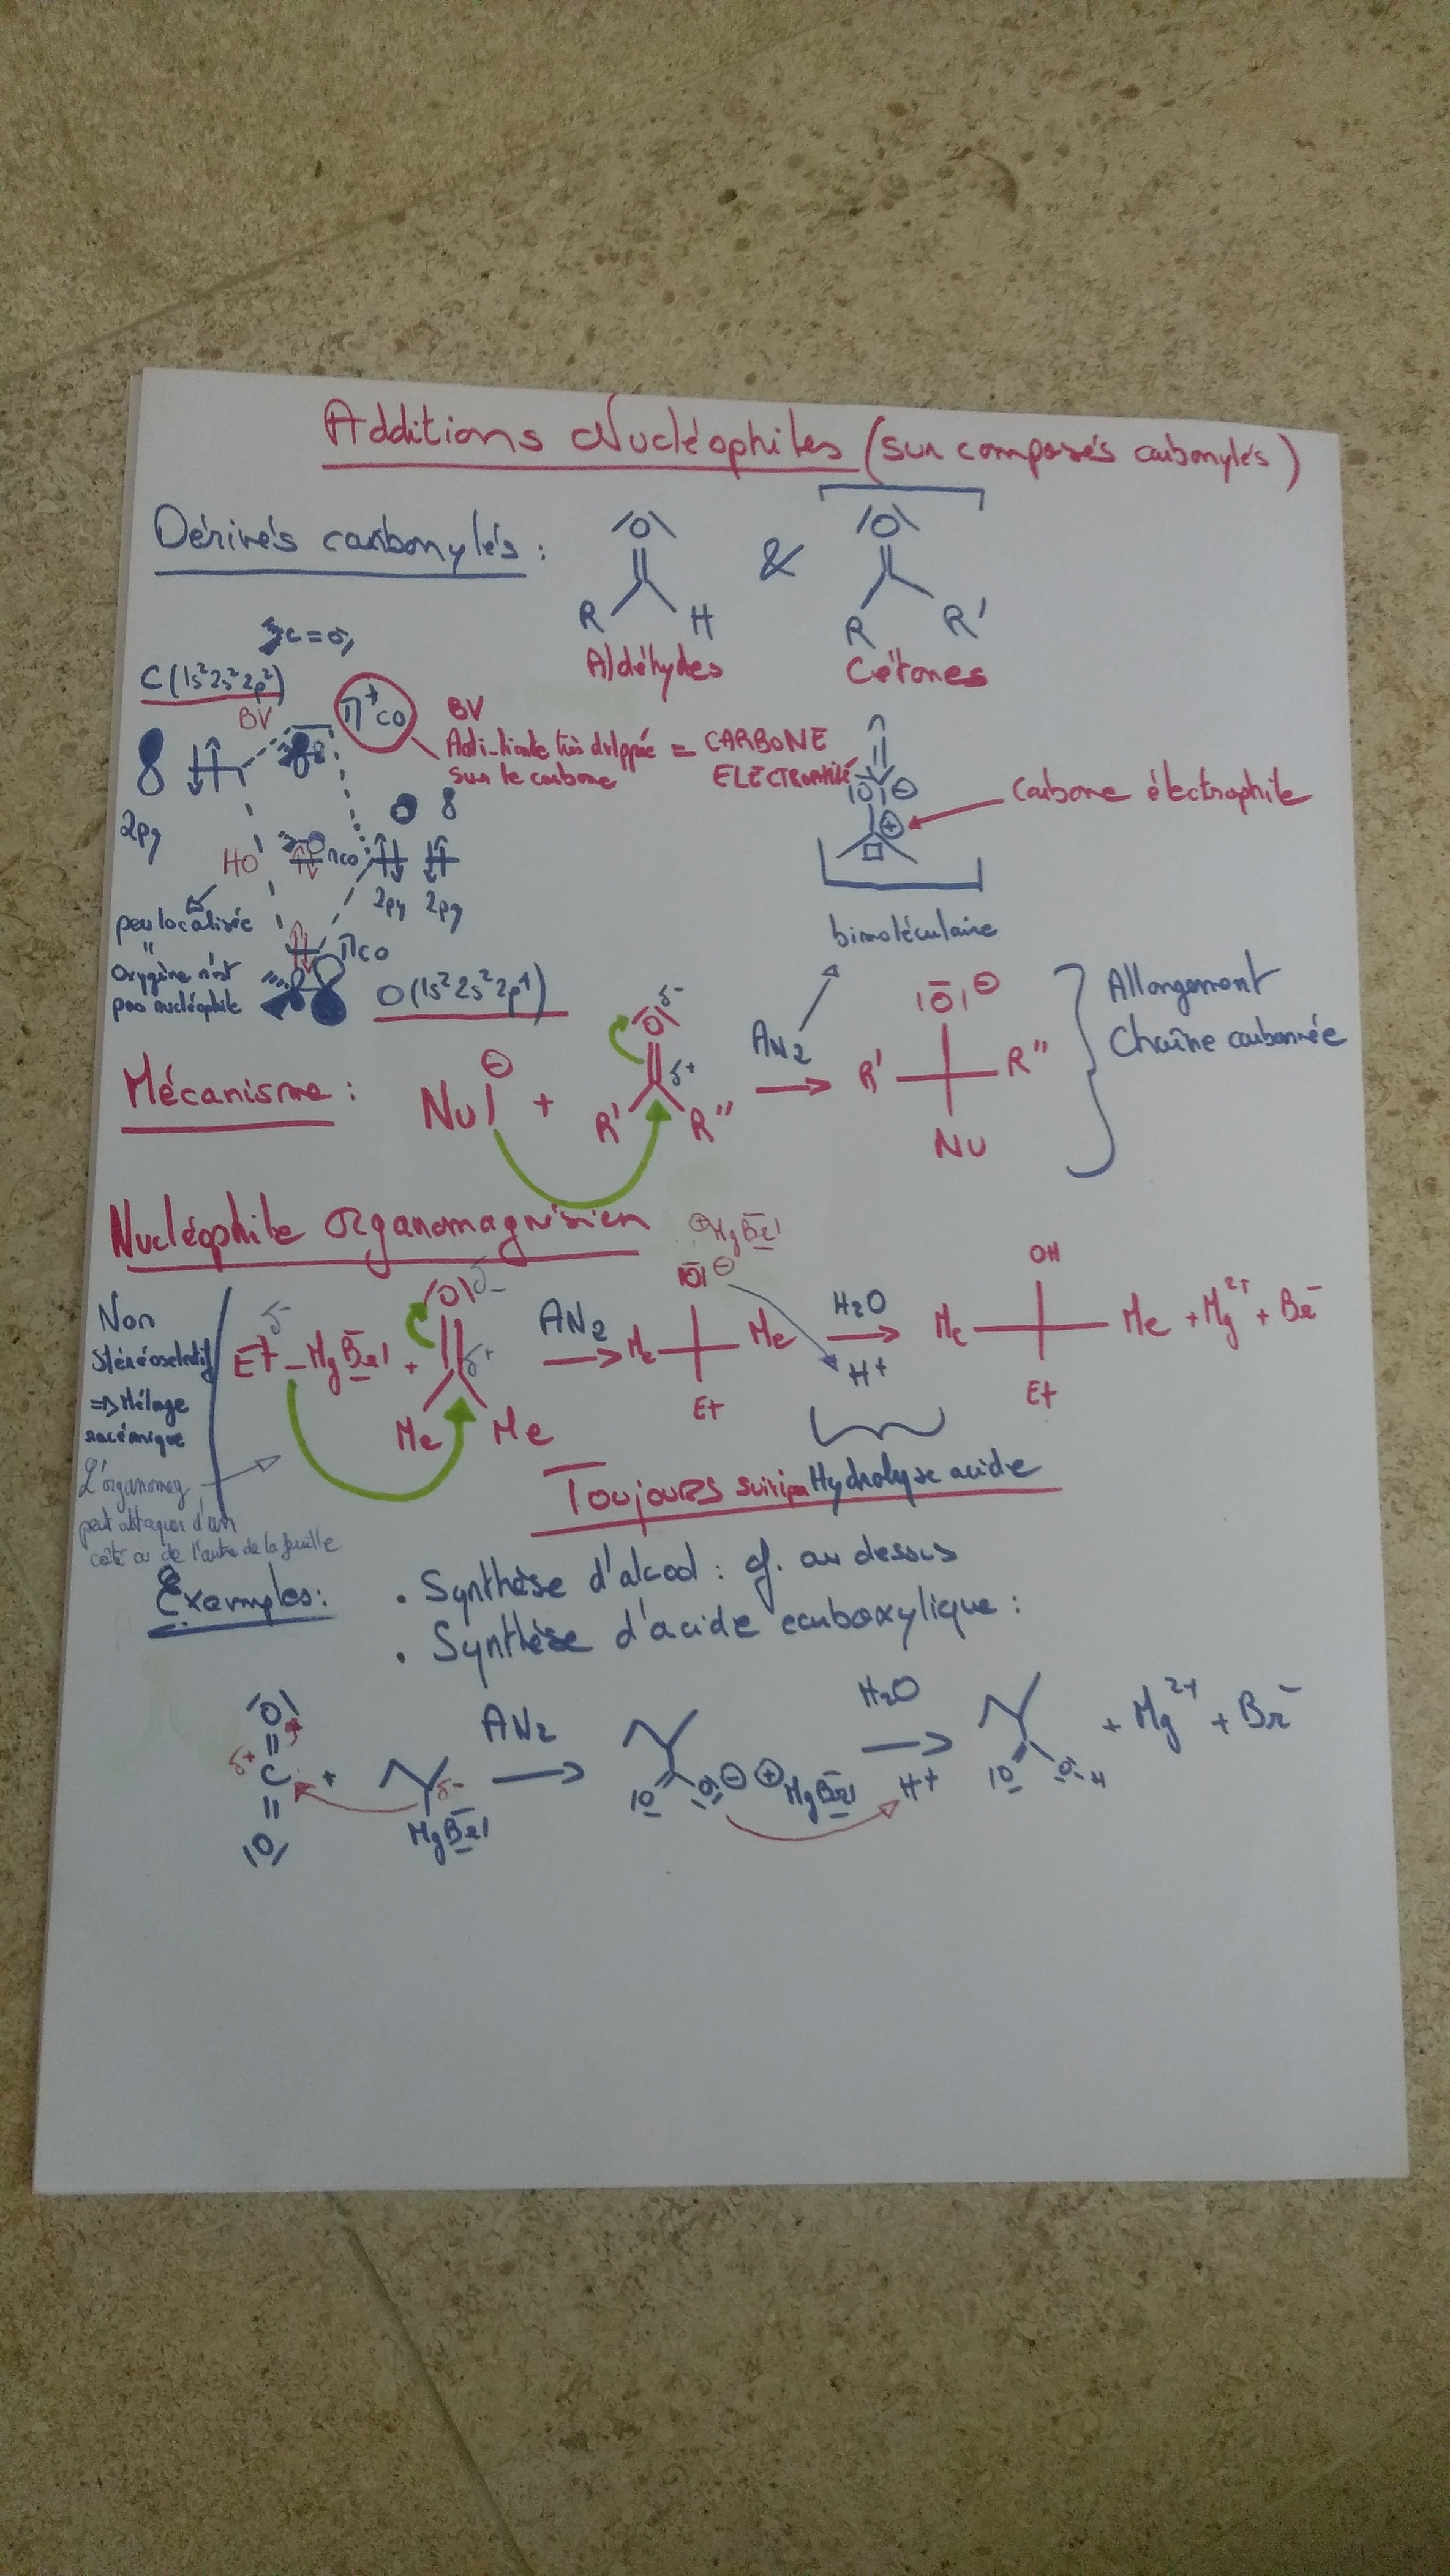 Additions Nucléophiles (sur composés carbonylés)
Dérivés carbonylés :
|O|
&
|O|
R
H
R
R'
Aldéhydes
Cétones
C (1s² 2s² 2p²)
BV
π*co
BV
Anti-liante très dvlppée = CARBONE
sur le carbone ELECTROPHILE
|O|⊖
⊕
Carbone électrophile
2py
HO
πco
2py 2py
peu localisée
"
Oxygène n'est
pas nucléophile
πco
O (1s² 2s² 2p⁴)
bimoléculaire
Mécanisme :
Nu| ⊖ +
|O| δ-
δ+
R'
R''
AN2
|O|⊖
R'
R''
Nu
Allongement
Chaîne carbonnée
Nucléophile Organomagnésien
⊕MgBr|
Non
stéréoselectif
=> Mélange
racémique
L'organomag
peut attaquer d'un
côté ou de l'autre de la feuille
δ-
Et-MgBr| +
|O| δ-
δ+
Me
Me
AN2
|O|⊖
Me
Me
Et
H2O
H+
OH
Me
Me + Mg2+ + Br-
Et
Toujours suivi par Hydrolyse acide
Exemples :
. Synthèse d'alcool : cf. au dessus
. Synthèse d'acide carboxylique :
|O|
δ+
C
|O|
+
δ-
MgBr|
AN2
|O
O|⊖ ⊕MgBr|
H2O
H+
|O
O-H
+ Mg2+ + Br-